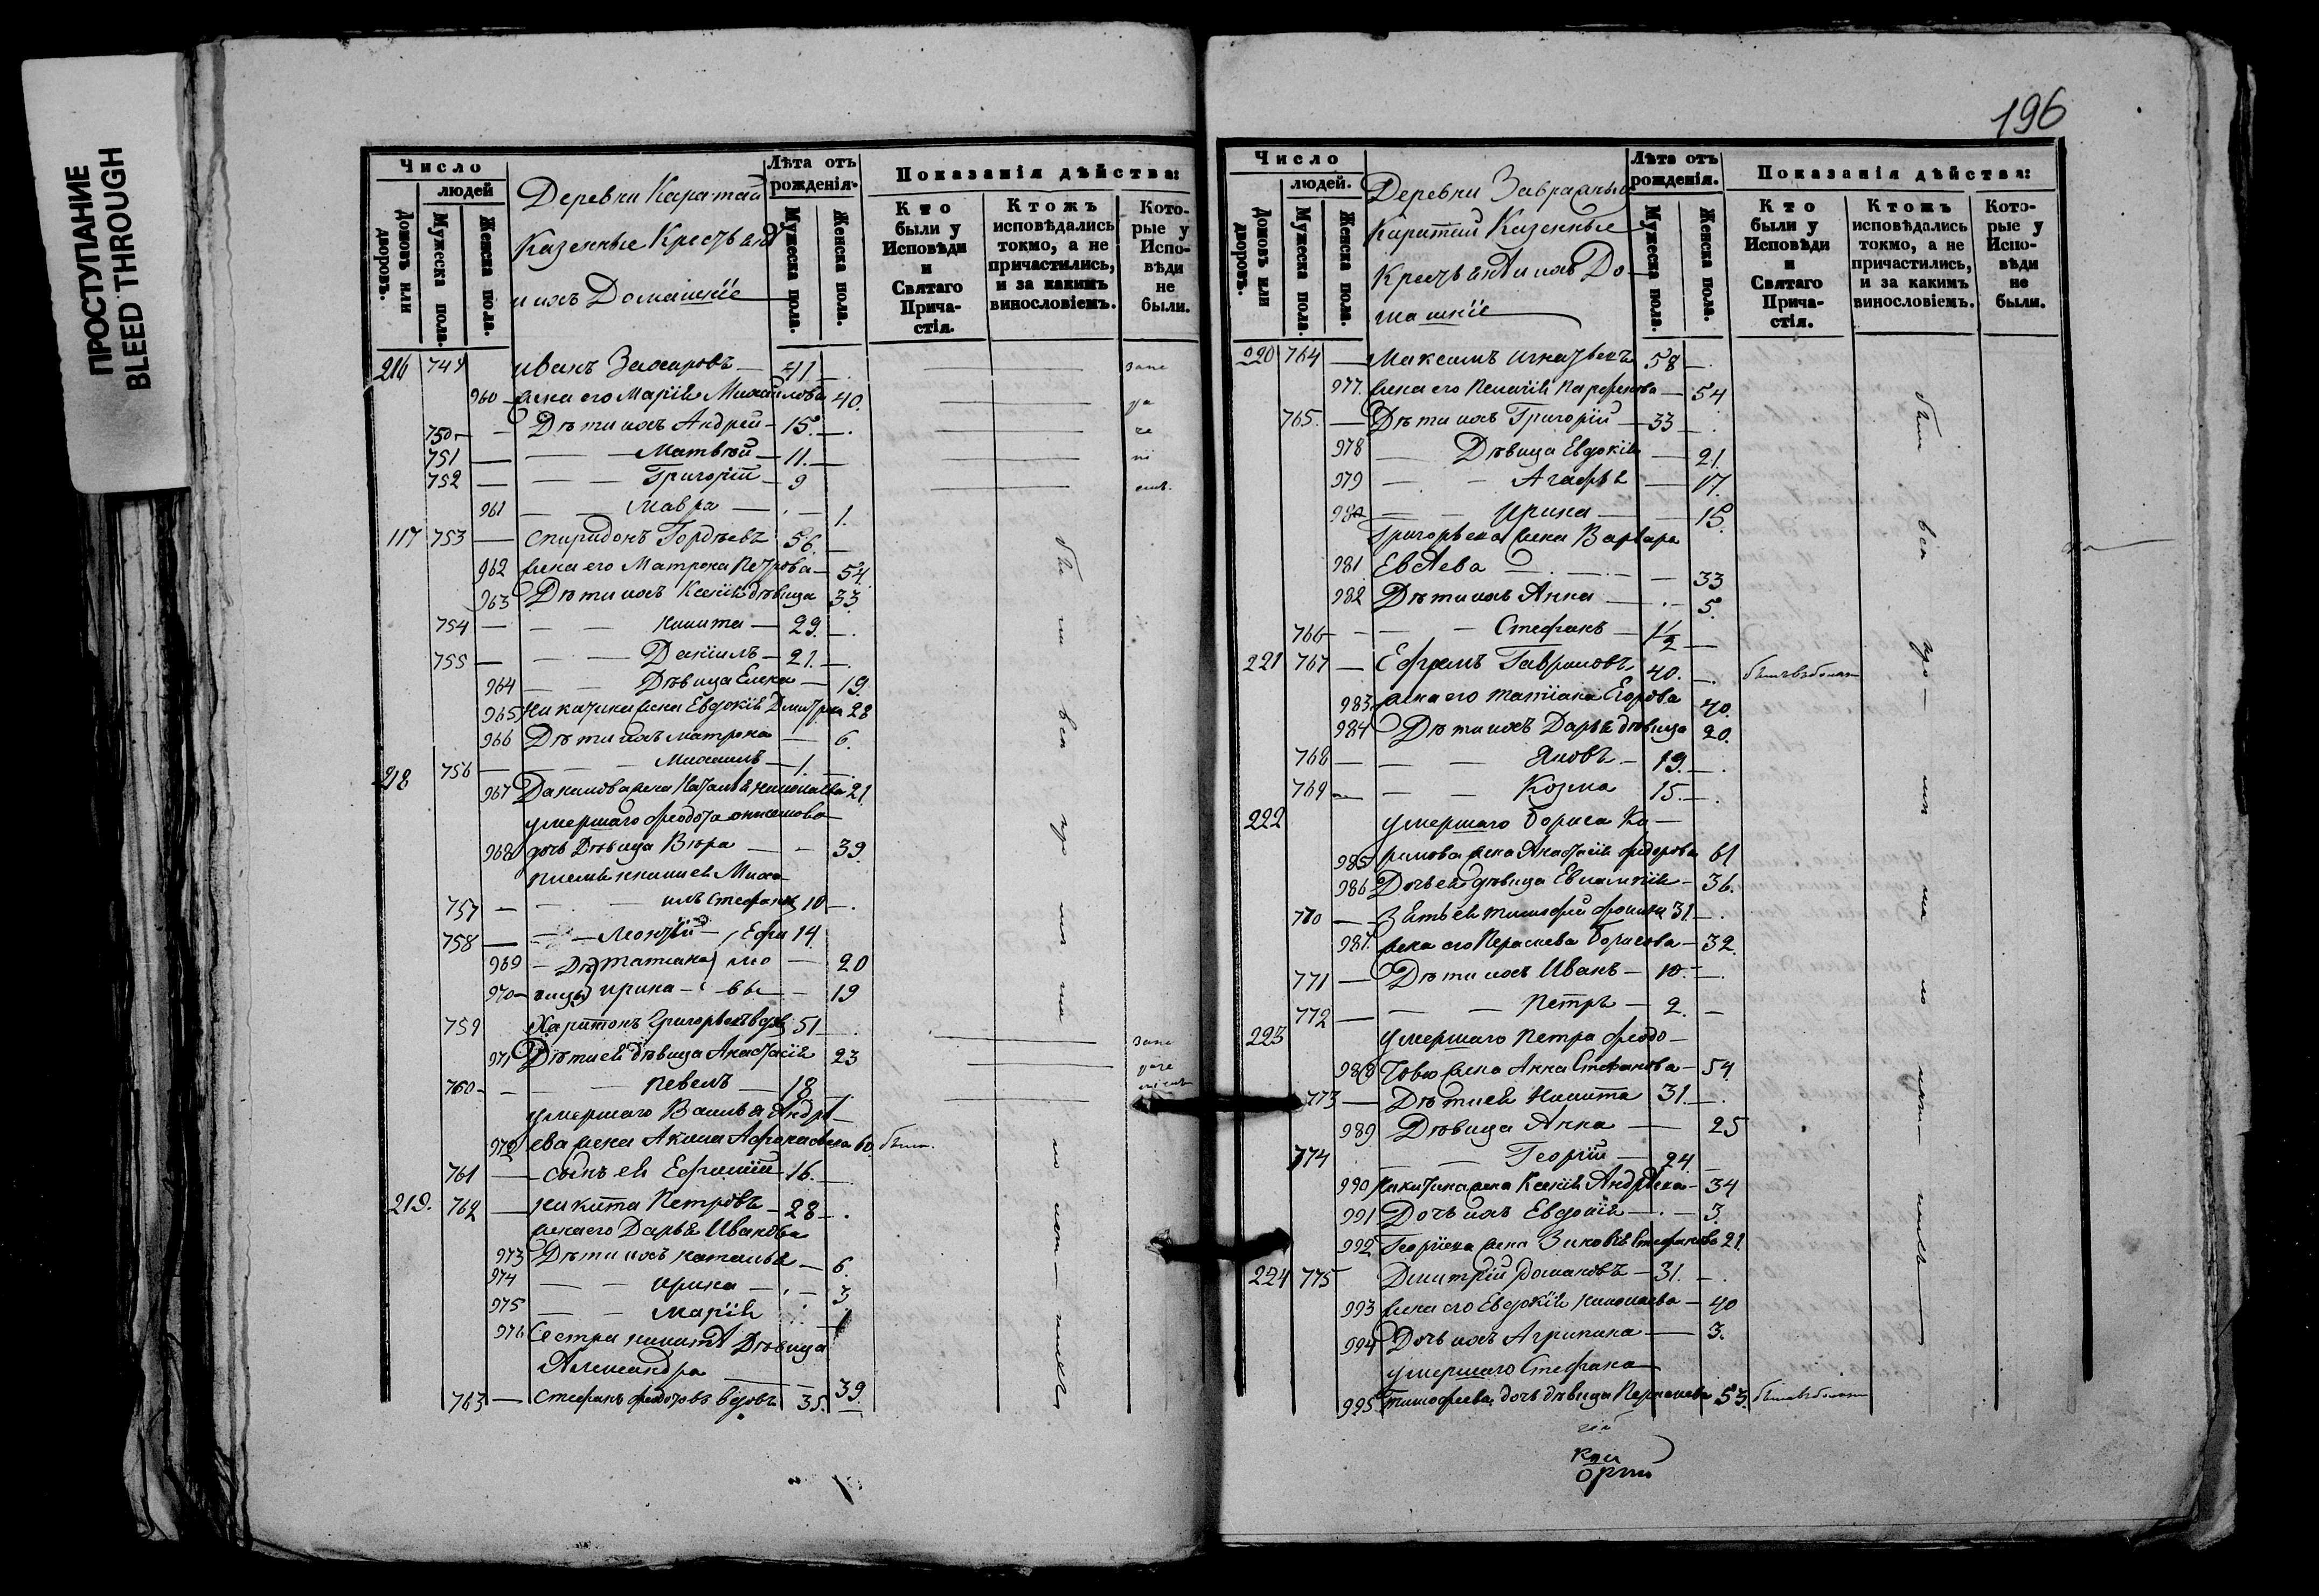 ПРОСТУПАНИЕ
BLEED THROUGH
Число
людей
Домовъ или дворовъ.
Мужеска пола.
Женска пола.
Деревни Каратай
Казенные Крестьяне
и ихъ Домашніе
Лѣта отъ рожденія.
Мужеска пола.
Женска пола.
Показанія дѣйства:
Кто были у Исповѣди и Святаго Причастія.
Ктожъ исповѣдались токмо, а не причастились, и за какимъ винословіемъ.
Которые у Исповѣди не были.
216 749 Иванъ Захаровъ — 41
960 жена его Марія Михайлова 40.
750 Дѣти ихъ Андрей — 15.
751 Матвѣй — 11.
752 Григорій — 9
961 Мавра — 1.
117 753 Спиридонъ Гордѣевъ 56.
962 жена его Матрона Петрова — 54.
963 Дѣти ихъ Ксенія дѣвица 33
754 Никита — 29.
755 Даніилъ — 21.
964 Дѣвица Елена — 19.
965 Никитина жена Евдокія 28
966 Дѣти ихъ Матрона — 6.
218 756 Михаилъ — 1.
967 Данилова жена Наталья Николаева 21
умершаго Федота
968 дочь Дѣвица Вѣра — 39.
Миха-
757 илъ Стефан 10
758 Леонтій — Ефи 14
969 — Дѣ Татіана мо — 20
970 вицы Ирина — вы — 19
759 Харитонъ Григорьевъ вдов 51
971 Дѣти ей дѣвица Анастасія 23
760 Павелъ — 18
умершаго Василья Андре-
972 ева жена Акилина 60. была.
761 сынъ ей Ефимій — 16.
219. 762 Никита Петровъ — 28
жена его Дарья Иванова
973 Дѣти ихъ Наталья — 6.
974 Ирина — 3
975 Марія 1
976 Сестра Никиты Дѣвица
Александра 39.
763 Стефанъ Федотовъ вдовъ 35.
196
Число
людей.
Домовъ или дворовъ.
Мужеска пола.
Женска пола.
Деревни
Каратай Казенные
Крестьяне и ихъ До-
машніе
Лѣта отъ рожденія.
Мужеска пола.
Женска пола.
Показанія дѣйства:
Кто были у Исповѣди и Святаго Причастія.
Ктожъ исповѣдались токмо, а не причастились, и за какимъ винословіемъ.
Которые у Исповѣди не были.
220 764 Максимъ Игнатьевъ 58
977 жена его Пелагія Парфенова — 54
765. Дѣти ихъ Григорій — 33
978 Дѣвица Евдокія — 21.
979 Агафья — 17.
980 Ирина — 15.
Григорьева жена Варвара
981 33
982 Дѣти ихъ Анна — 5.
766 Стефанъ — 1½
221 767 Ефремъ Гавриловъ 40.
983 жена его Татіана Егорова 40.
984 Дѣти ихъ Дарья дѣвица 20.
768 Яковъ — 19.
769 Козма 15.
222 умершаго Бориса Ки-
985 рилова жена Анастасія Федорова 61
986 Дочь ей дѣвица Евлампія — 36.
770 Зять ей Тимофей 31.
987. жена его Параскева Борисова — 32.
771 Дѣти ихъ Иванъ — 10.
772 Петръ — 2.
223 умершаго Петра Федо-
988 това жена Анна Стефанова — 54
773 Дѣти ей Никита 31.
989 Дѣвица Анна — 25
774 Георгій — 24.
990 Никитина жена Ксенія Андреева — 34
991 Дочь ихъ Евдокія — 3.
992 Георгіева жена Зиновья Стефанова 21.
224 775 Дмитрій Романовъ — 31.
993 жена его Евдокія Николаева — 40
994 Дочь ихъ Агрипина — 3.
умершаго Стефана
995 Тимофеева дочь дѣвица Параскева 53.